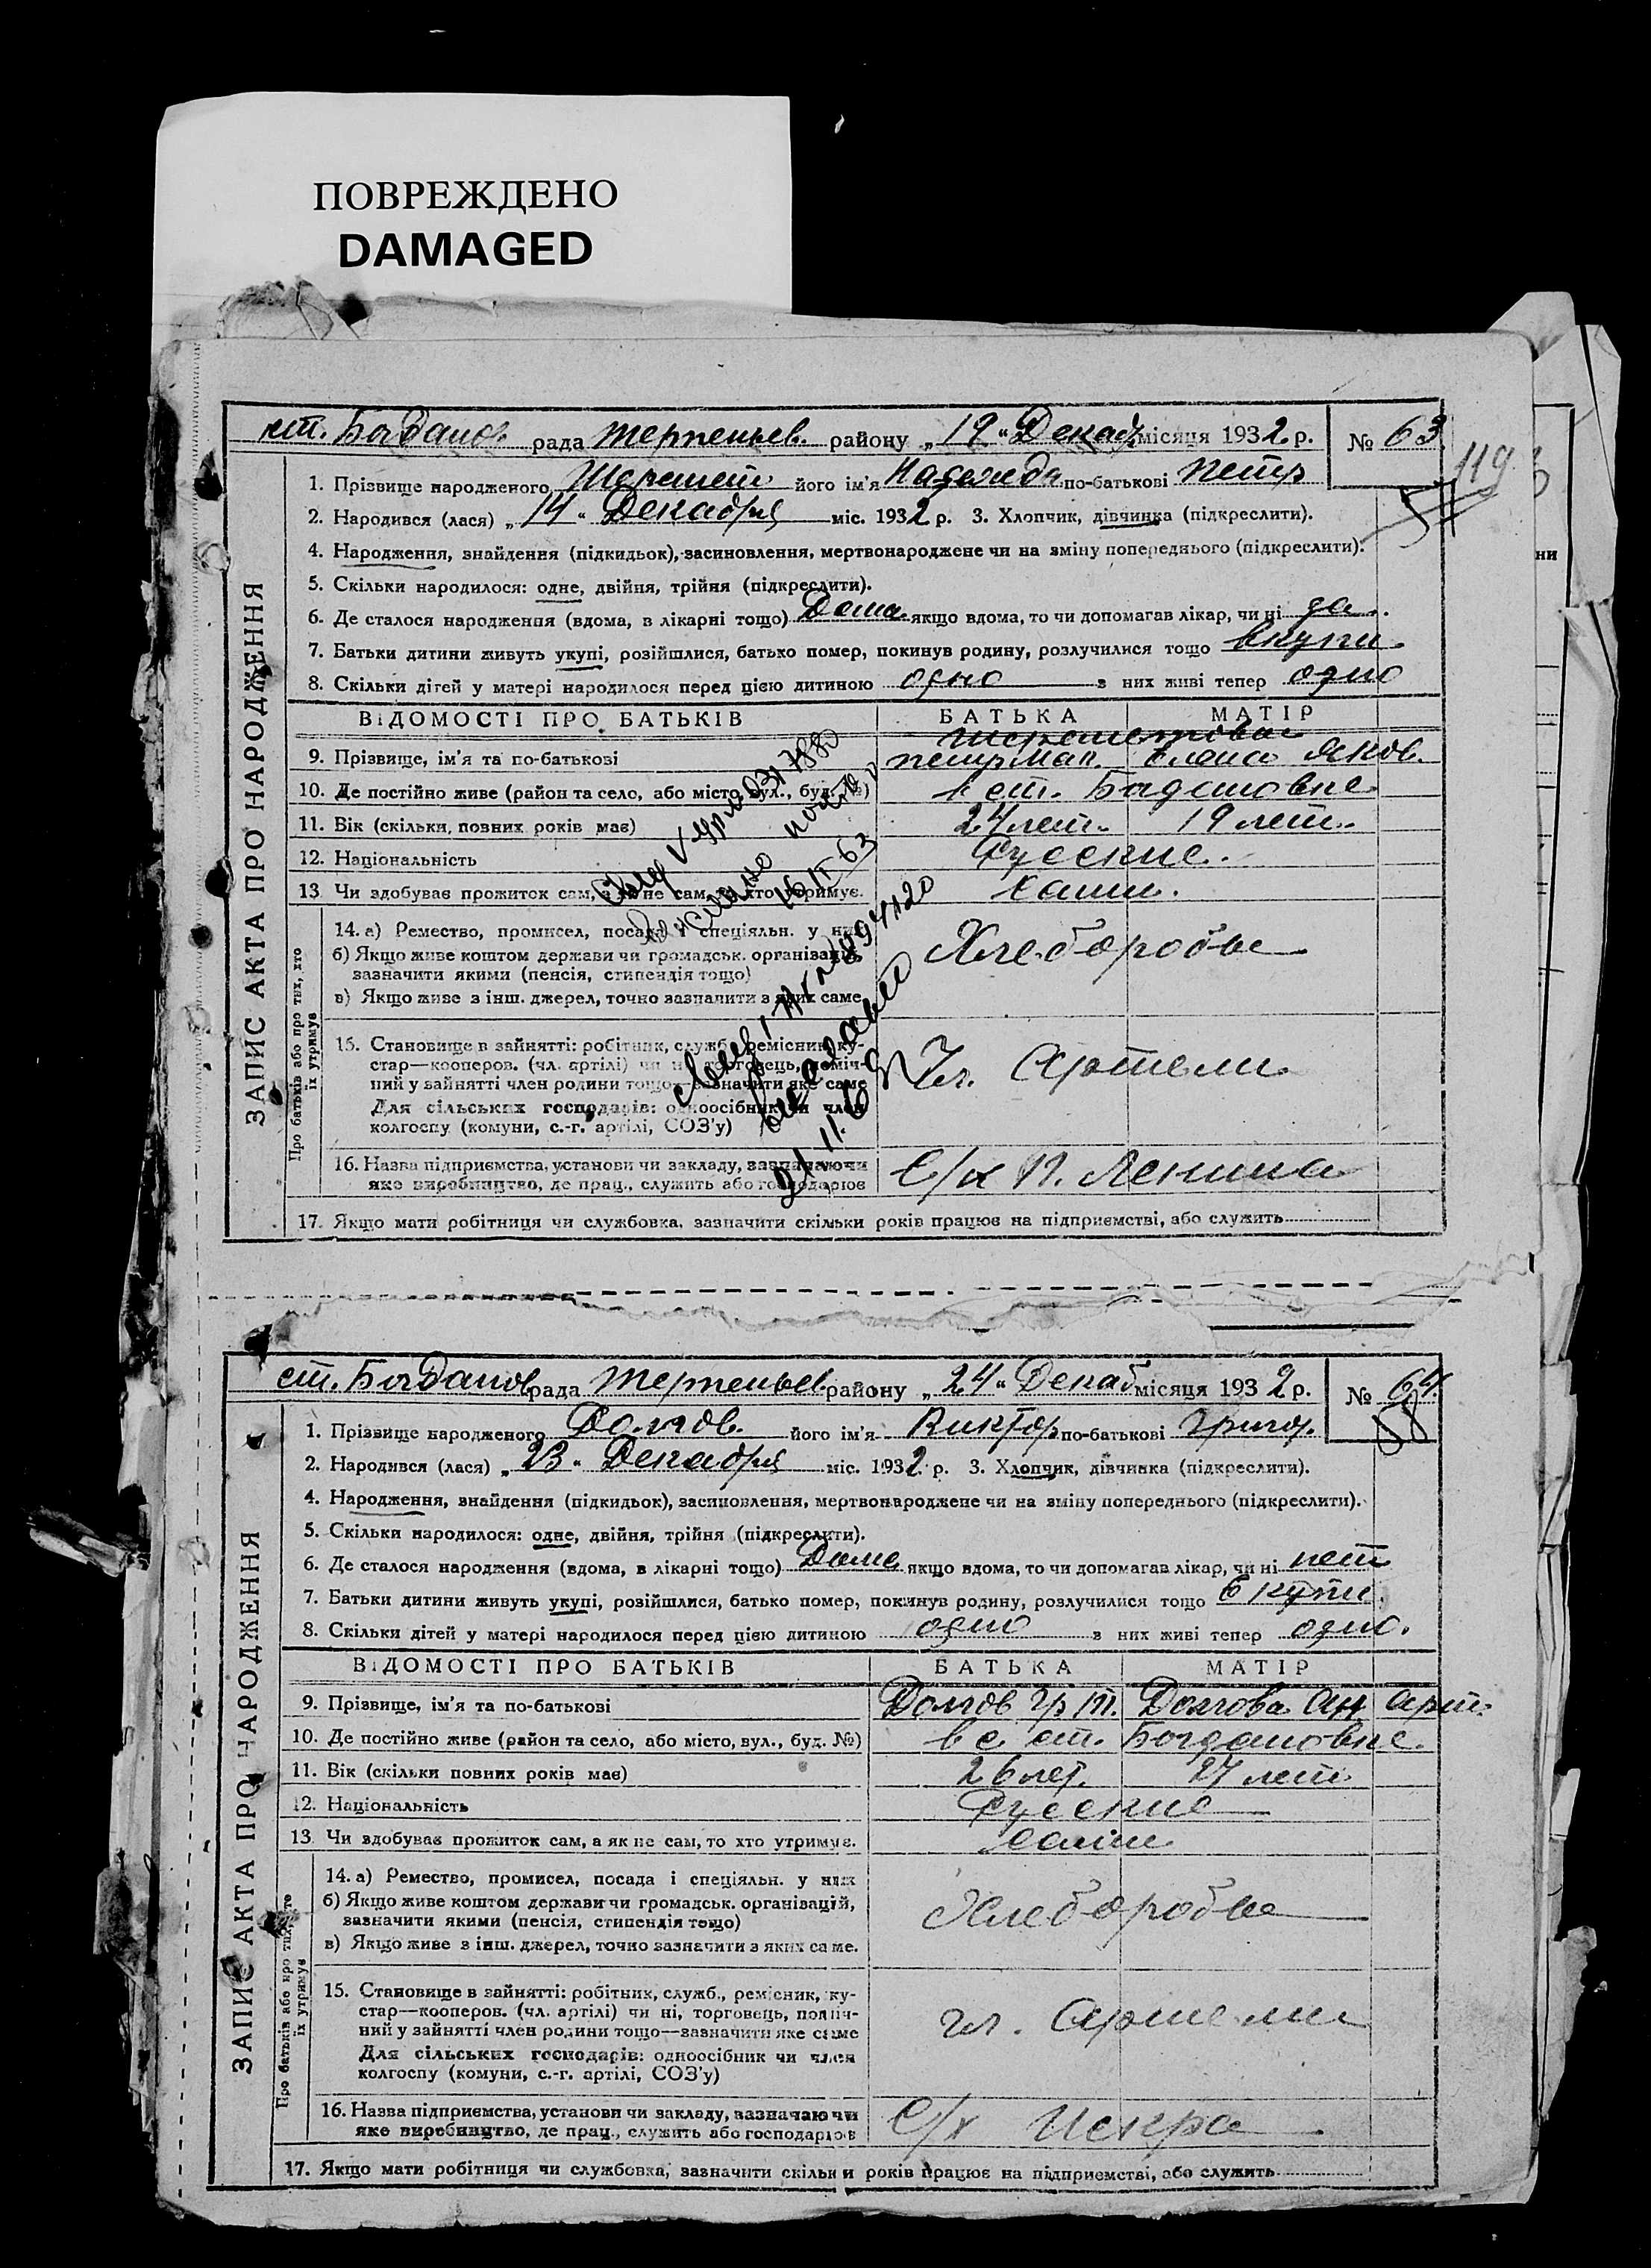 ПОВРЕЖДЕНО
DAMAGED
ст. Богданов. рада Терпеньев. району „19“ Декаб. місяця 1932 р. № 63
119
1. Прізвище народженого його ім'я Надежда по-батькові Петр
2. Народився (лася) „14“ Декабря міс. 1932 р. 3. Хлопчик, дівчинка (підкреслити).
4. Народження, знайдення (підкидьок), засиновлення, мертвонароджене чи на зміну попереднього (підкреслити).
5. Скільки народилося: одне, двійня, трійня (підкреслити).
6. Де сталося народження (вдома, в лікарні тощо) Дома якщо вдома, то чи допомагав лікар, чи ні да.
7. Батьки дитини живуть укупі, розійшлися, батько помер, покинув родину, розлучилися тощо вкупи.
8. Скільки дітей у матері народилося перед цією дитиною одно з них живі тепер одно
ВІДОМОСТІ ПРО БАТЬКІВ БАТЬКА МАТІР
9. Прізвище, ім'я та по-батькові Петр Мак. Елена Яков.
10. Де постійно живе (район та село, або місто, вул., буд. №) в ст. Богдановке
11. Вік (скільки повних років має) 24 лет. 19 лет.
12. Національність Русские.
13. Чи здобуває прожиток сам, а як не сам, то хто утримує. Сами.
14. а) Ремество, промисел, посада і спеціяльн. у них Хлеборобы
б) Якщо живе коштом держави чи громадськ. організацій,
зазначити якими (пенсія, стипендія тощо)
в) Якщо живе з інш. джерел, точно зазначити з яких саме.
15. Становище в зайнятті: робітник, служб., ремісник, ку-
стар—кооперов. (чл. артілі) чи ні, торговець, поміч-
ний у зайнятті член родини тощо—зазначити яке саме
Для сільських господарів: одноосібник чи член
колгоспу (комуни, с.-г. артілі, СОЗ'у)
Чл. Артели
16. Назва підприємства, установи чи закладу, зазначаючи
яке виробництво, де прац., служить або господарює
С/х И. Ленина
17. Якщо мати робітниця чи службовка, зазначити скільки років працює на підприємстві, або служить
ЗАПИС АКТА ПРО НАРОДЖЕННЯ
Про батьків або про тих, хто
їх утримує
16 IV 63
ст. Богданов. рада Терпеньев. району „24“ Декаб місяця 1932 р. № 64.
1. Прізвище народженого Долгов. його ім'я Виктор по-батькові Григор.
2. Народився (лася) „23“ Декабря міс. 1932 р. 3. Хлопчик, дівчинка (підкреслити).
4. Народження, знайдення (підкидьок), засиновлення, мертвонароджене чи на зміну попереднього (підкреслити).
5. Скільки народилося: одне, двійня, трійня (підкреслити).
6. Де сталося народження (вдома, в лікарні тощо) Дома якщо вдома, то чи допомагав лікар, чи ні нет
7. Батьки дитини живуть укупі, розійшлися, батько помер, покинув родину, розлучилися тощо вкупи.
8. Скільки дітей у матері народилося перед цією дитиною одно з них живі тепер одно.
ВІДОМОСТІ ПРО БАТЬКІВ БАТЬКА МАТІР
9. Прізвище, ім'я та по-батькові Долгов Гр. Долгова Ан Арт.
10. Де постійно живе (район та село, або місто, вул., буд. №) в с. ст. Богдановке.
11. Вік (скільки повних років має) 26 лет. 27 лет.
12. Національність Русские
13. Чи здобуває прожиток сам, а як не сам, то хто утримує. Сами
14. а) Ремество, промисел, посада і спеціяльн. у них Хлеборобы
б) Якщо живе коштом держави чи громадськ. організацій,
зазначити якими (пенсія, стипендія тощо)
в) Якщо живе з інш. джерел, точно зазначити з яких саме.
15. Становище в зайнятті: робітник, служб., ремісник, ку-
стар—кооперов. (чл. артілі) чи ні, торговець, поміч-
ний у зайнятті член родини тощо—зазначити яке саме
Для сільських господарів: одноосібник чи член
колгоспу (комуни, с.-г. артілі, СОЗ'у)
чл. Артели
16. Назва підприємства, установи чи закладу, зазначаючи
яке виробництво, де прац., служить або господарює
С/х Искра
17. Якщо мати робітниця чи службовка, зазначити скільки років працює на підприємстві, або служить
ЗАПИС АКТА ПРО НАРОДЖЕННЯ
Про батьків або про тих, хто
їх утримує